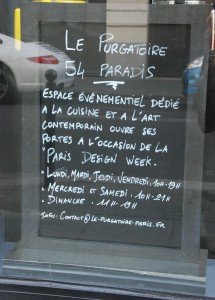 LE PURGATOIRE
54 PARADIS
ESPACE ÉVÉNEMENTIEL DÉDIÉ
A LA CUISINE ET A L'ART
CONTEMPORAIN OUVRE SES
PORTES A L'OCCASION DE LA
"PARIS DESIGN WEEK.
• LUNDI, MARDI, JEUDI, VENDREDI. 10H-19H
• MERCREDI ET SAMEDI. 10H-21H
• DIMANCHE. 11H-19H
CONTACT@LE-PURGATOIRE-PARIS.FR